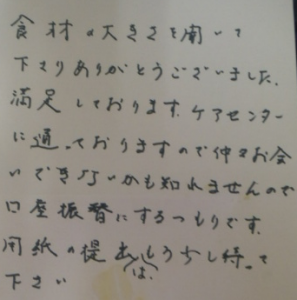 食材の大きさを聞いて
下さりありがとうございました。
満足しております。ケアセンター
に通っておりますので仲々お会
いできないかも知れませんので
口座振替にするつもりです。
用紙の提出はもう少し待って
下さい